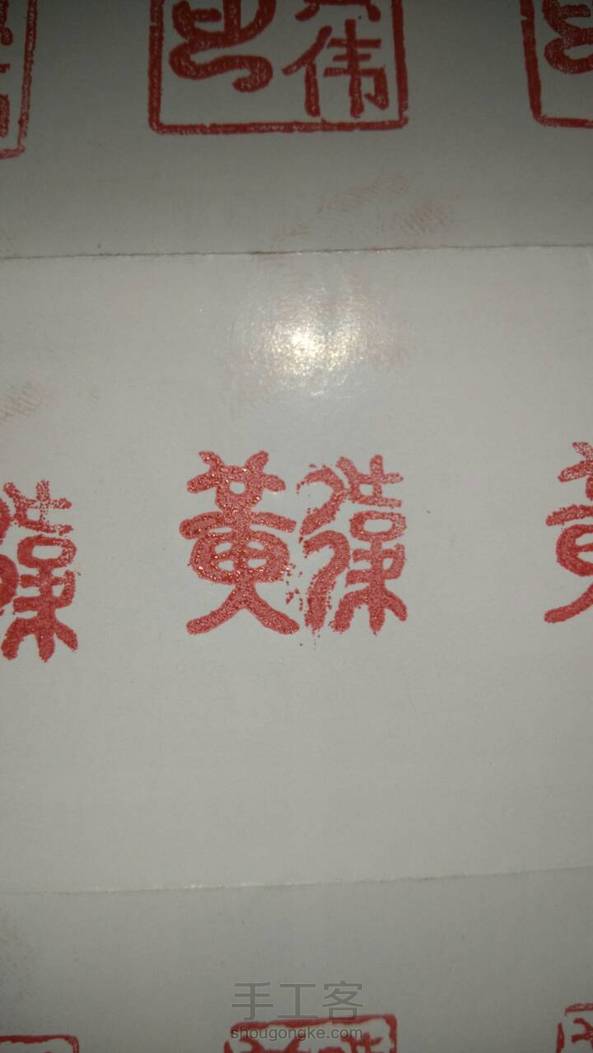 伟
黃偉
手工客
shougongke.com